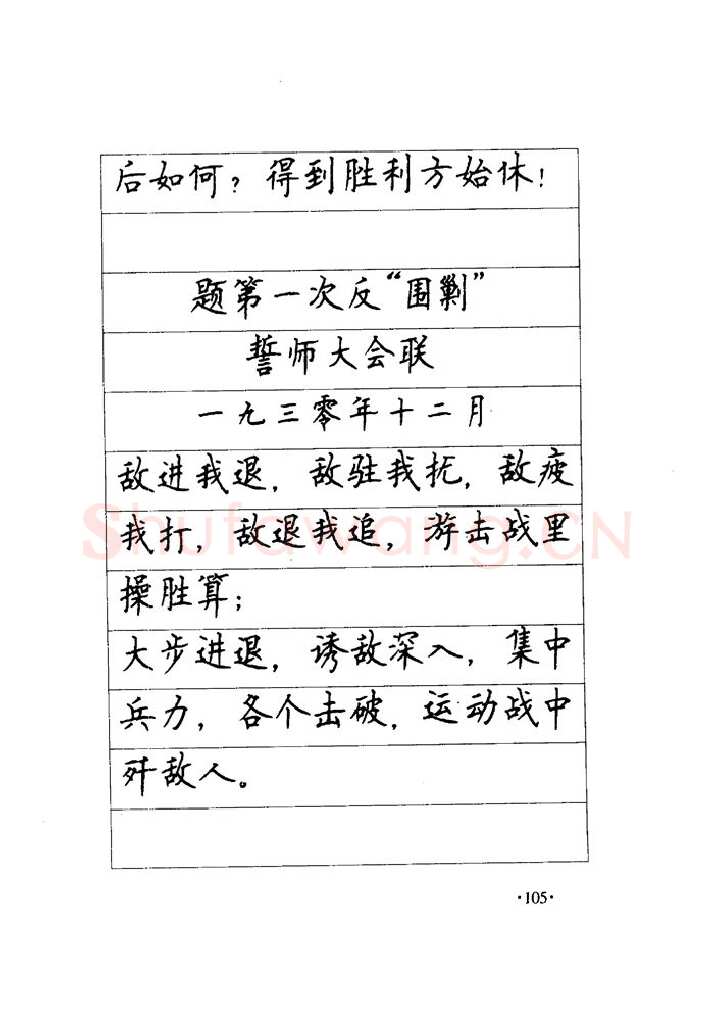 后如何？得到胜利方始休！
题第一次反“围剿”
誓师大会联
一九三零年十二月
敌进我退，敌驻我扰，敌疲
我打，敌退我追，游击战里
操胜算；
大步进退，诱敌深入，集中
兵力，各个击破，运动战中
歼敌人。
·105·
Shufawang.CN